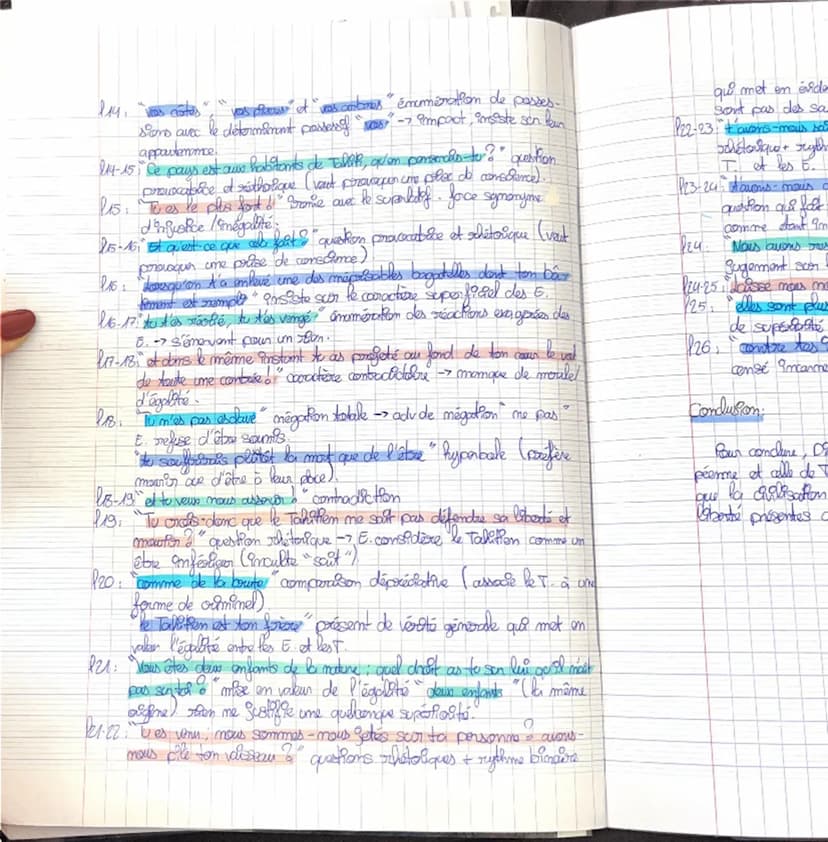 l14: "vos côtes" "vos pierres" et "vos arbres" énumération de posses-
sions avec le déterminant possessif "vos" → impact, insiste sur leur
appartenance.
l14-15: "Ce pays est aux habitants de Tahiti, qu'en penserais-tu?" question
provocatrice et réthorique (veut provoquer une prise de conscience).
l15: "Tu es le plus fort!" Ironie avec le superlatif. force synonyme
d'injustice / inégalité.
l15-16: "Et qu'est-ce que cela fait?" question provocatrice et rhétorique (veut
provoquer une prise de conscience)
l16: "Lorsqu'on t'a enlevé une des méprisables bagatelles dont ton bâ-
timent est rempli" insiste sur le caractère superficiel des E.
l16-17: "tu t'es récrié, tu t'es vengé" énumération des réactions exagérées des
E. → s'énervent pour un rien.
l17-18: "et dans le même instant tu as projeté au fond de ton cœur le vol
de toute une contrée!" caractère contradictoire → manque de morale/
d'égalité.
l18: "Tu n'es pas esclave" négation totale → adv de négation "ne pas"
E. refuse d'être soumis.
"tu souffrirais plutôt la mort que de l'être" hyperbole (préfère
mourir que d'être à leur place).
l18-19: "et tu veux nous asservir!" contradiction
l19: "Tu crois donc que le Tahitien ne sait pas défendre sa liberté et
mourir?" question rhétorique → E. considère le Tahitien comme un
être inférieur (inculte "sait")
l20: "comme de la brute" comparaison dépréciative (associe le T. à une
forme de criminel)
"le Tahitien est ton frère" présent de vérité générale qui met en
valeur l'égalité entre les E. et les T.
l21: "Vous êtes deux enfants de la nature; quel droit as-tu sur lui qu'il n'ait
pas sur toi?" mise en valeur de l'égalité "deux enfants" (la même
origine) rien ne justifie une quelconque supériorité.
l21-22: "Tu es venu; nous sommes-nous jetés sur ta personne? avons-
nous pillé ton vaisseau?" questions rhétoriques + rythme binaire
qui met en évide
sont pas des sa
l22-23: "t'avons-nous sai
rhétorique + ryth
T. et les E.
l23-24: "t'avons-nous a
question qui fait
comme étant in
l24: "Nous avons res
jugement sur l
l24-25: "Laisse nous no
l25: "elles sont plus
de supériorité
l26: "contre tes
censé incarne
Conclusion:
Pour conclure, Di
péenne et celle de T
que la civilisation
liberté présentes c